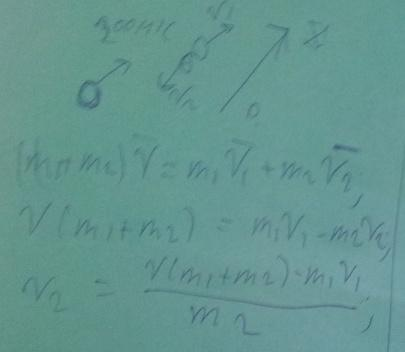 300 м/с V₁ X
V₂ 0
(m₁+m₂)V̄ = m₁V̄₁ + m₂V̄₂;
V(m₁+m₂) = m₁V₁ - m₂V₂;
V₂ = (V(m₁+m₂) - m₁V₁) / m₂;